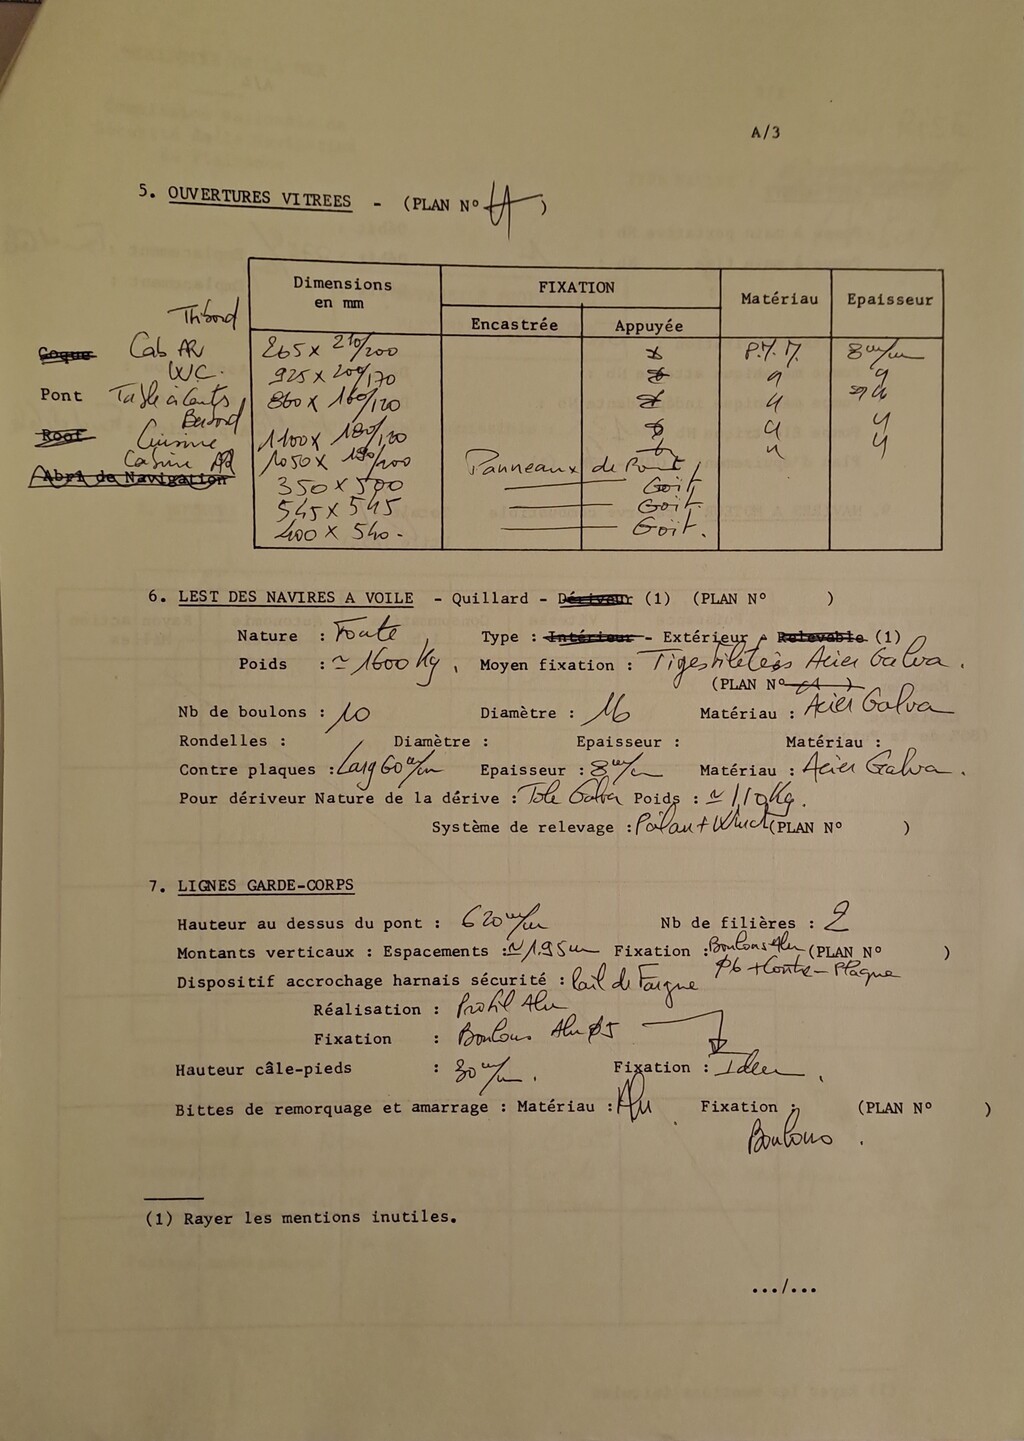 A/3
5. OUVERTURES VITREES - (PLAN N° )
Dimensions en mm FIXATION Matériau Epaisseur
Encastrée Appuyée
Tribord
Coque Cab AR 265 x 210/200 x P.M.M. 8 m/m
WC. 925 x 200/170 x " "
Pont Table à Cartes 860 x 160/120 x " "
Babord
Roof Cuisine 1100 x 180/120 x " "
Cabine AR 1050 x 190/200 " "
Abri de Navigation Panneaux de Pont
350 x 500 Goït
545 x 545 Goït.
400 x 540 - Goït.
6. LEST DES NAVIRES A VOILE - Quillard - Dériveur (1) (PLAN N° )
Nature : Fonte Type : Intérieur - Extérieur - Relevable (1)
Poids : ≃ 1600 Kg, Moyen fixation : Tiges filetées Acier Galva.
(PLAN N° )
Nb de boulons : 10 Diamètre : 16 Matériau : Acier Galva
Rondelles : / Diamètre : Epaisseur : Matériau :
Contre plaques : Larg 60 m/m Epaisseur : 8 m/m Matériau : Acier Galva.
Pour dériveur Nature de la dérive : Tole Galva Poids : ≃ 110 Kg.
Système de relevage : Palan + Winch (PLAN N° )
7. LIGNES GARDE-CORPS
Hauteur au dessus du pont : 620 m/m Nb de filières : 2
Montants verticaux : Espacements : ≃ 1,95 m Fixation : Boulons Alu (PLAN N° )
φ6 + Contre-Plaque
Dispositif accrochage harnais sécurité : Rail de Fargue
Réalisation : Profil Alu
Fixation : Boulons Alu φ5
Hauteur câle-pieds : 30 m/m. Fixation : Idem
Bittes de remorquage et amarrage : Matériau : Alu Fixation : (PLAN N° )
Boulons.
(1) Rayer les mentions inutiles.
.../...